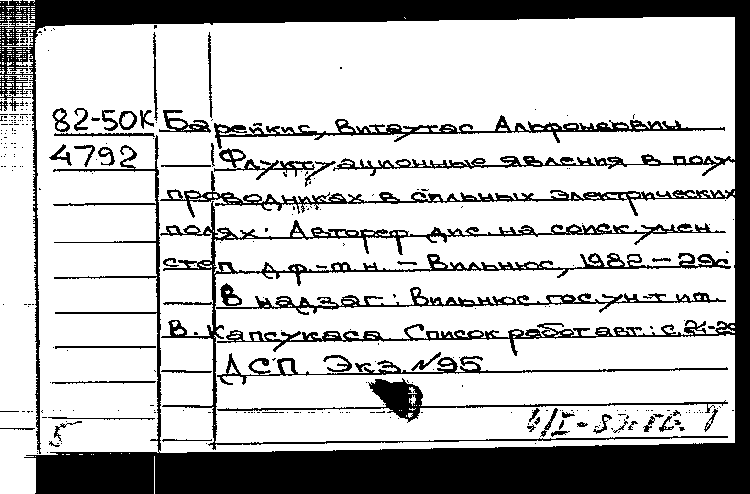 82-50К Барейкис, Витаутас Альфонсович
4792 Флуктуационные явления в полу-
проводниках в сильных электрических
полях: Автореф. дис. на соиск. учен.
степ. д.ф.-м.н. – Вильнюс, 1982 – 29с
В надзаг.: Вильнюс. гос. ун-т им.
В. Капсукаса Список работ авт.: с. 24-29
ДСП. Экз. №95
5